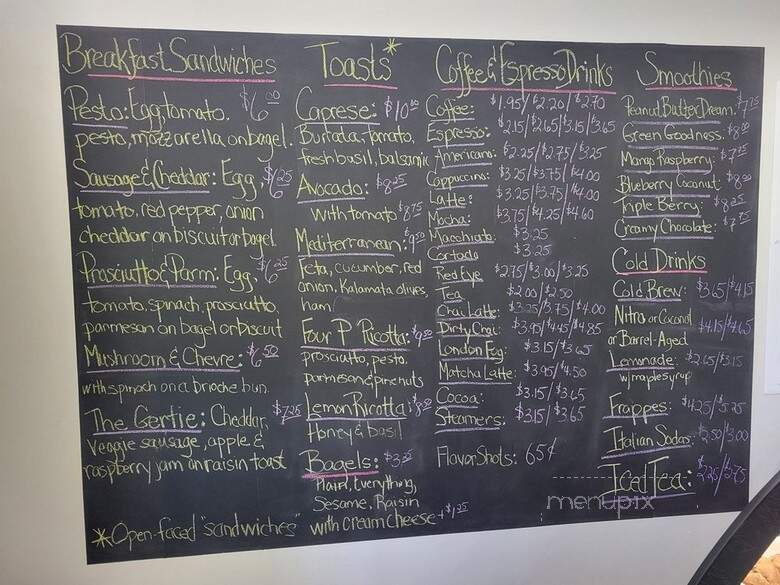 Breakfast Sandwiches
Pesto: Egg, tomato, $6.00
pesto, mozzarella on bagel.
Sausage & Cheddar: Egg, $6.25
tomato, red pepper, onion
cheddar on biscuit or bagel
Prosciutto & Parm: Egg, $6.25
tomato, spinach, prosciutto,
parmesan on bagel or biscuit
Mushroom & Chevre: $6.50
with spinach on a brioche bun.
The Gertie: Cheddar, $7.25
veggie sausage, apple &
raspberry jam on raisin toast
*Open-faced "sandwiches"
Toasts*
Caprese: $10.00
Burrata, tomato,
fresh basil, balsamic
Avocado: $8.25
with tomato $8.75
Mediterranean: $9.50
feta, cucumber, red
onion, Kalamata olives,
ham
Four P Ricotta: $9.50
prosciutto, pesto,
parmesan & pine nuts
Lemon Ricotta: $8.50
Honey & basil
Bagels: $3.25
Plain, Everything,
Sesame, Raisin
with cream cheese + $1.25
Coffee & Espresso Drinks
Coffee: $1.95/$2.20/$2.70
Espresso: $2.15/$2.65/$3.15/$3.65
Americano: $2.25/$2.75/$3.25
Cappuccino: $3.25/$3.75/$4.00
Latte: $3.25/$3.75/$4.00
Mocha: $3.75/$4.25/$4.60
Macchiato: $3.25
Cortado $3.25
Red Eye $2.75/$3.00/$3.25
Tea $2.00/$2.50
Chai Latte: $3.25/$3.75/$4.00
Dirty Chai: $3.95/$4.45/$4.85
London Fog: $3.15/$3.65
Matcha Latte: $3.95/$4.50
Cocoa: $3.15/$3.65
Steamers: $3.15/$3.65
Flavor Shots: 65¢
Smoothies
Peanut Butter Dream: $7.75
Green Goodness: $8.00
Mango Raspberry: $7.75
Blueberry Coconut: $8.00
Triple Berry: $8.25
Creamy Chocolate: $7.75
Cold Drinks
Cold Brew: $3.65/$4.15
Nitro or Coconut $4.15/$4.65
or Barrel-Aged
Lemonade: $2.65/$3.15
w/ maple syrup
Frappes: $4.25/$5.25
Italian Sodas: $2.50/$3.00
Iced Tea: $2.25/$2.75
menupix